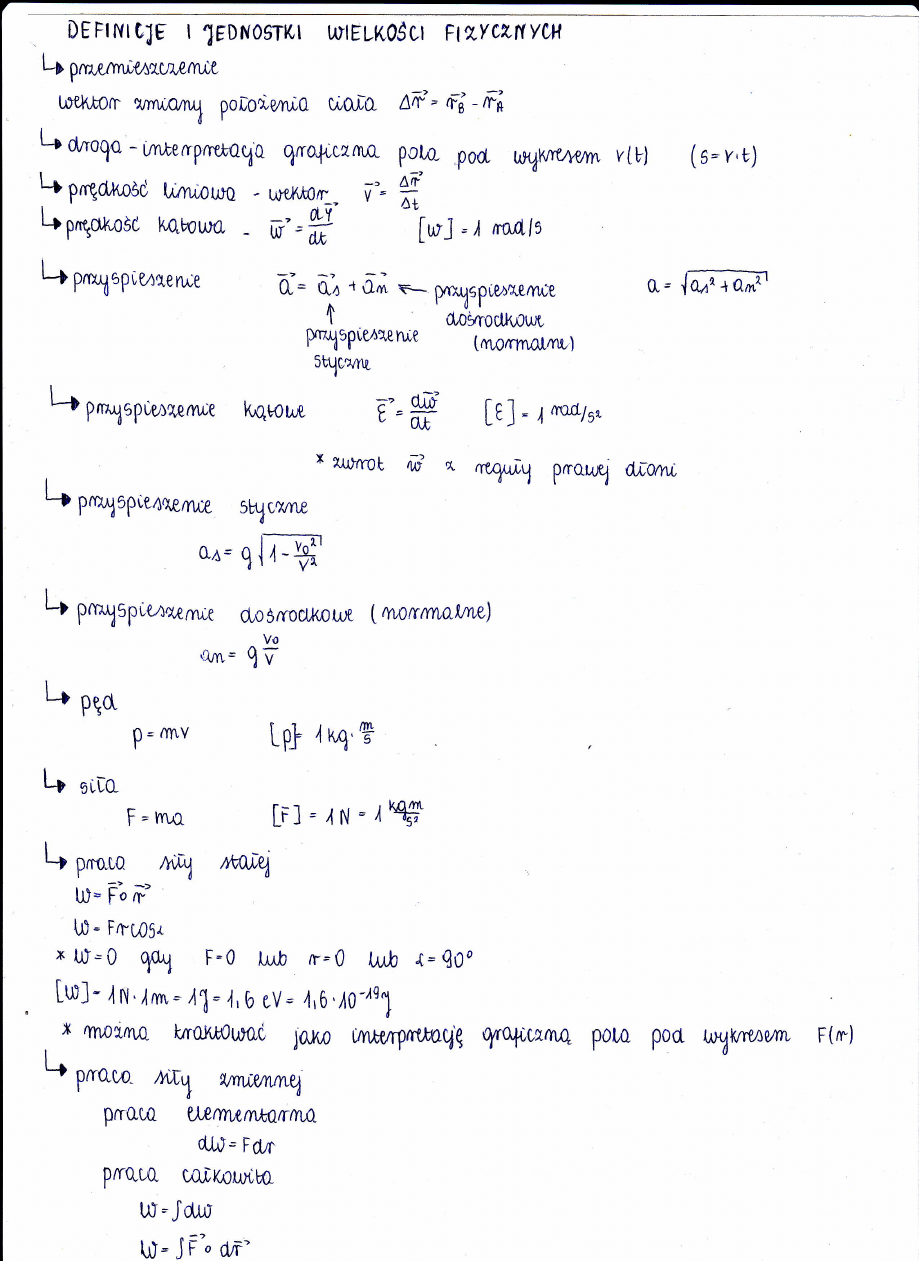 DEFINICJE I JEDNOSTKI WIELKOŚCI FIZYCZNYCH
↳ przemieszczenie
wektor zmiany położenia ciała Δr⃗ = r⃗_B - r⃗_A
↳ droga - interpretacja graficzna pola pod wykresem v(t) (s = v·t)
↳ prędkość liniowa - wektor v⃗ = Δr⃗/Δt
↳ prędkość kątowa - w⃗ = dφ⃗/dt [w] = 1 rad/s
↳ przyspieszenie a⃗ = a⃗s + a⃗n ← przyspieszenie dośrodkowe (normalne) a = √(as² + an²)
↑
przyspieszenie
styczne
↳ przyspieszenie kątowe ε⃗ = dw⃗/dt [ε] = 1 rad/s²
* zwrot w⃗ z reguły prawej dłoni
↳ przyspieszenie styczne
as = g√(1 - v0²/v²)
↳ przyspieszenie dośrodkowe (normalne)
an = g v0/v
↳ pęd
p = mv [p] = 1 kg · m/s
↳ siła
F = ma [F] = 1N = 1 kgm/s²
↳ praca siły stałej
W = F⃗ ∘ r⃗
W = Frcosα
* W=0 gdy F=0 lub r=0 lub α=90°
[W] = 1N·1m = 1J = 1,6 eV = 1,6·10⁻¹⁹J
* można traktować jako interpretację graficzną pola pod wykresem F(r)
↳ praca siły zmiennej
praca elementarna
dW = Fdr
praca całkowita
W = ∫dW
W = ∫F⃗ ∘ dr⃗